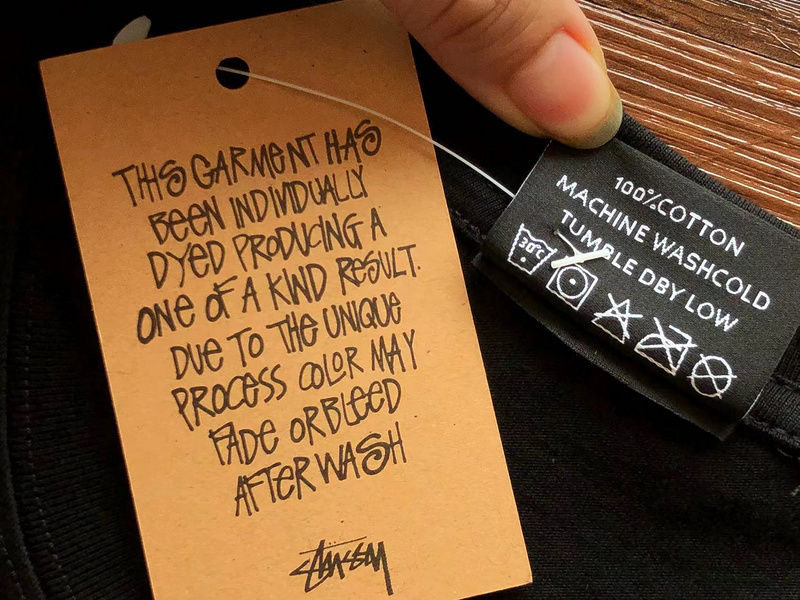 THIS GARMENT HAS
BEEN INDIVIDUALLY
DYED PRODUCING A
ONE OF A KIND RESULT.
DUE TO THE UNIQUE
PROCESS COLOR MAY
FADE OR BLEED
AFTER WASH
STÜSSY
100%COTTON
MACHINE WASHCOLD
TUMBLE DBY LOW
30°C